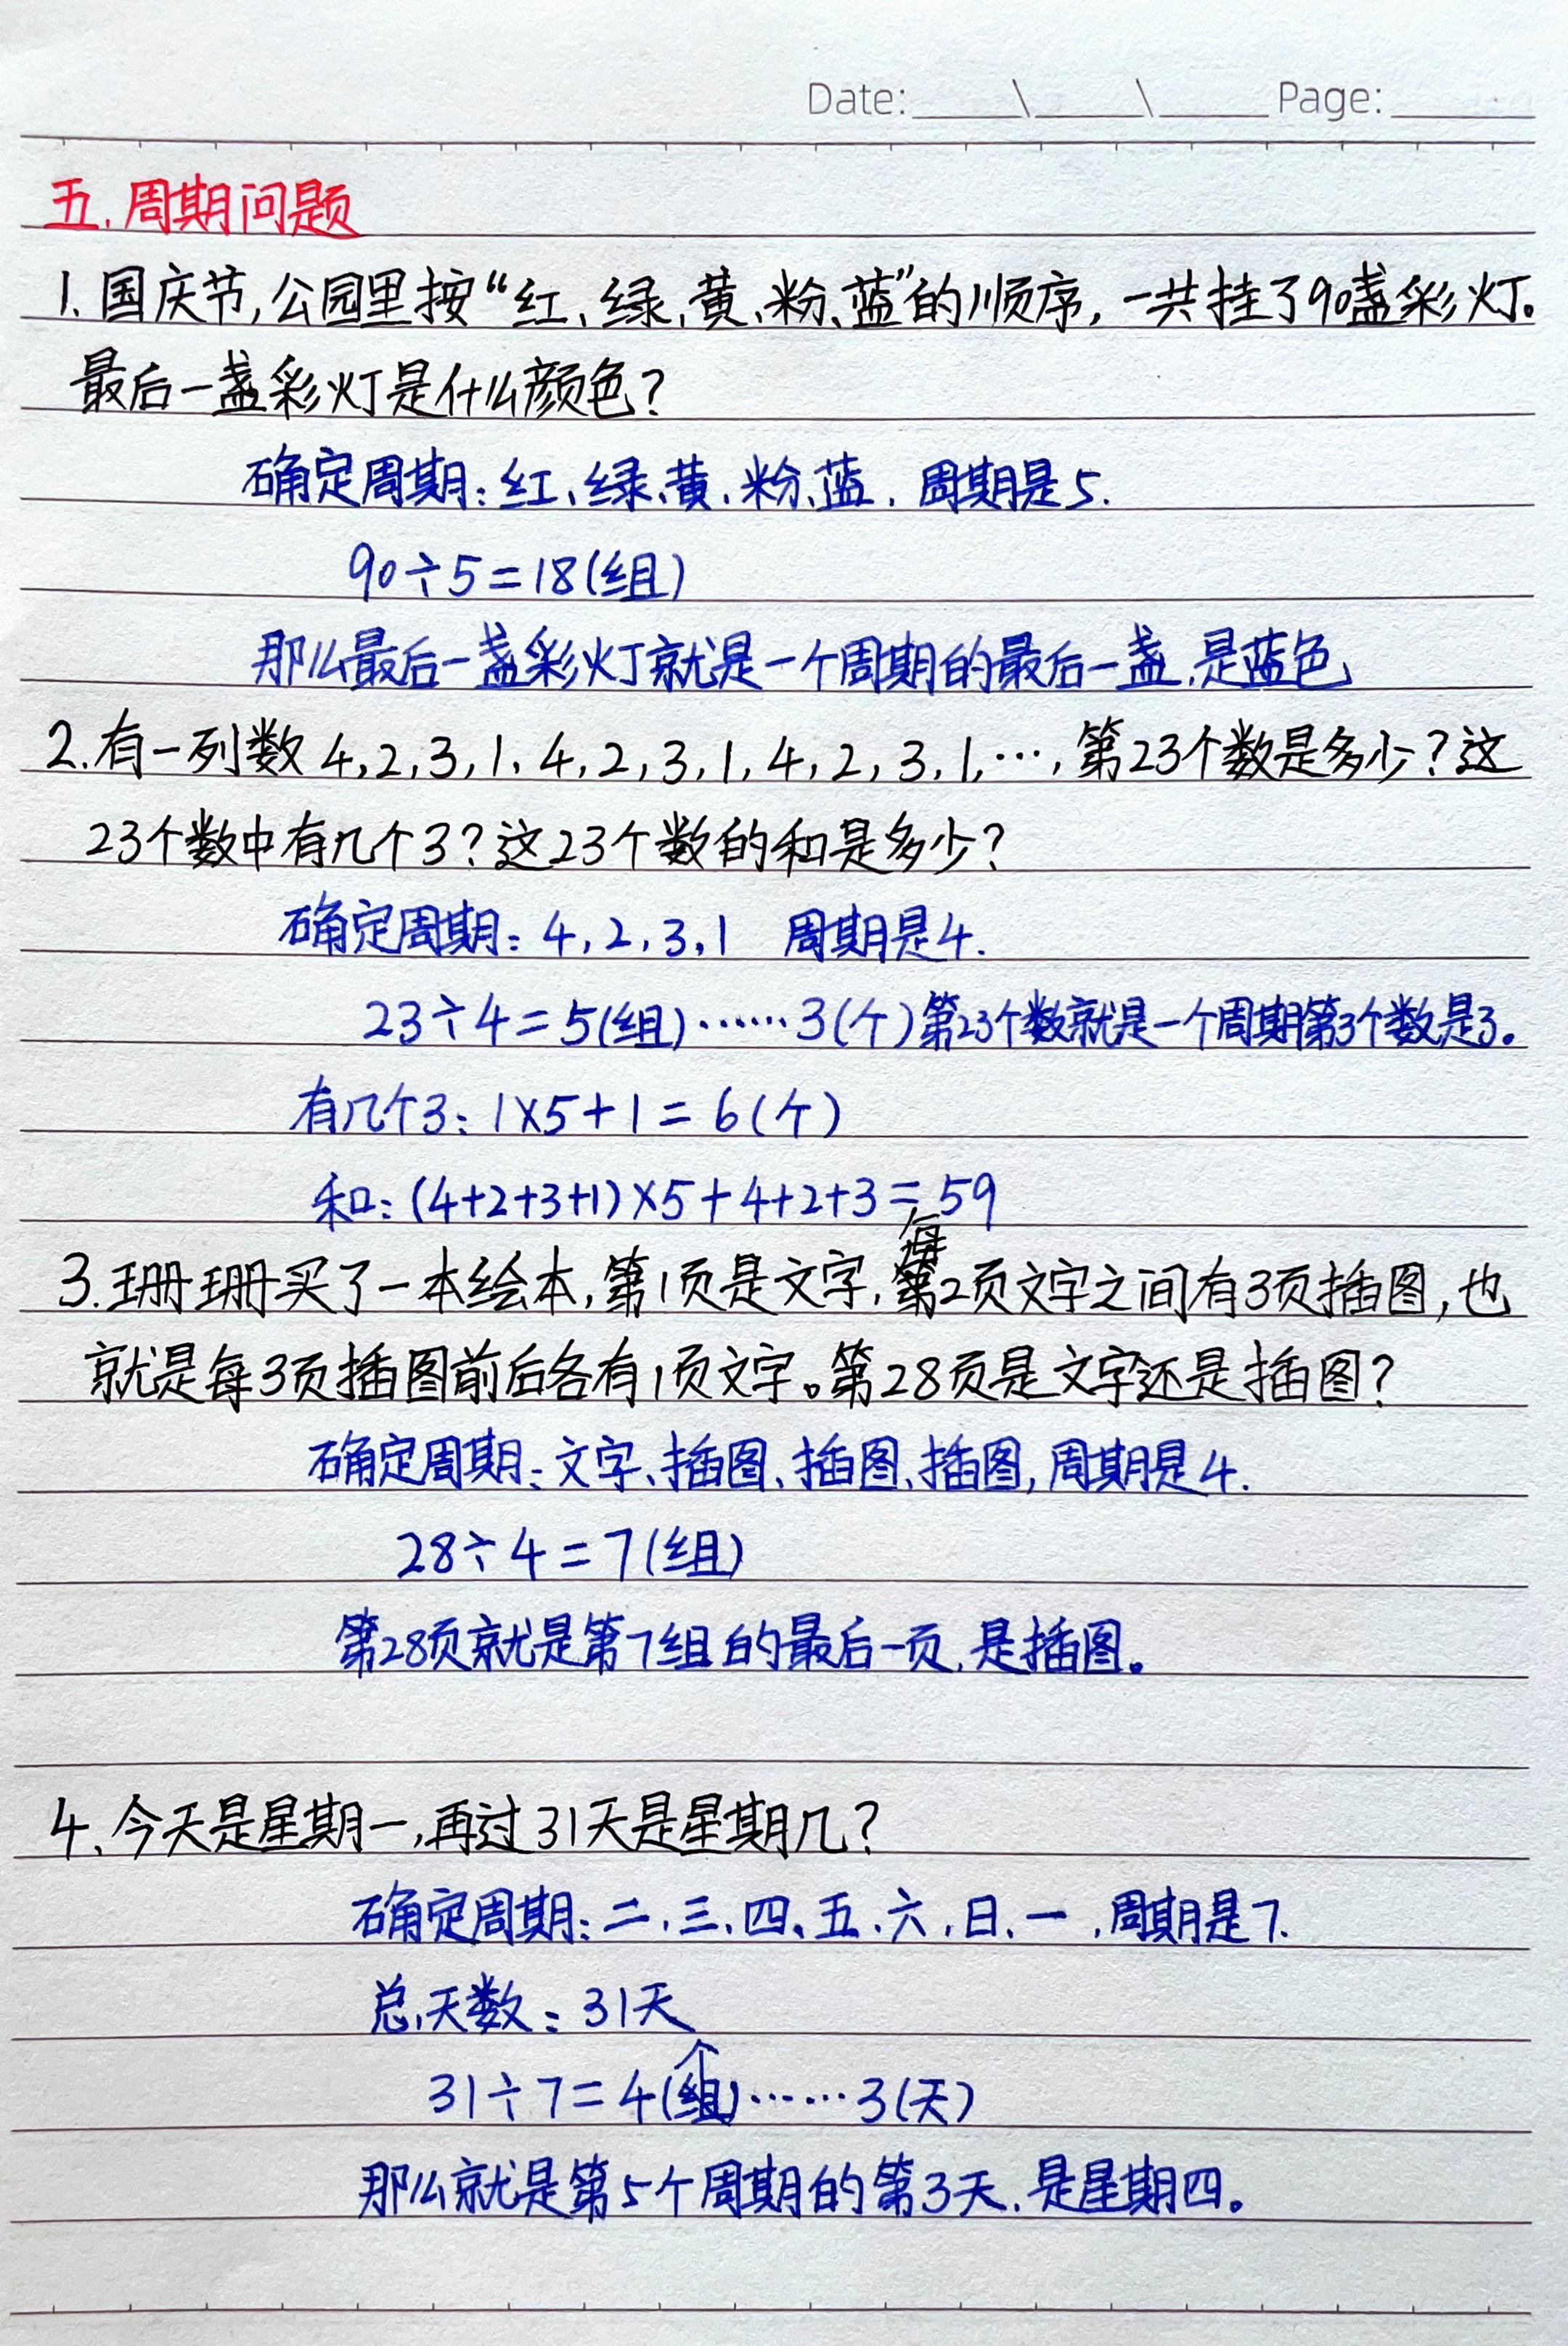 Date: \ \ Page:
五.周期问题
1.国庆节,公园里按“红、绿、黄、粉、蓝”的顺序,一共挂了90盏彩灯。
最后一盏彩灯是什么颜色?
确定周期:红、绿、黄、粉、蓝.周期是5.
90÷5=18(组)
那么最后一盏彩灯就是一个周期的最后一盏.是蓝色
2.有一列数4,2,3,1,4,2,3,1,4,2,3,1,…,第23个数是多少?这
23个数中有几个3?这23个数的和是多少?
确定周期:4,2,3,1 周期是4.
23÷4=5(组)……3(个)第23个数就是一个周期第3个数是3。
有几个3:1×5+1=6(个)
和:(4+2+3+1)×5+4+2+3=59
3.珊珊买了一本绘本,第1页是文字,每2页文字之间有3页插图,也
就是每3页插图前后各有1页文字。第28页是文字还是插图?
确定周期:文字、插图、插图、插图,周期是4.
28÷4=7(组)
第28页就是第7组的最后一页.是插图。
4.今天是星期一,再过31天是星期几?
确定周期:二、三、四、五、六、日、一,周期是7.
总天数:31天
31÷7=4(个)……3(天)
那么就是第5个周期的第3天.是星期四。